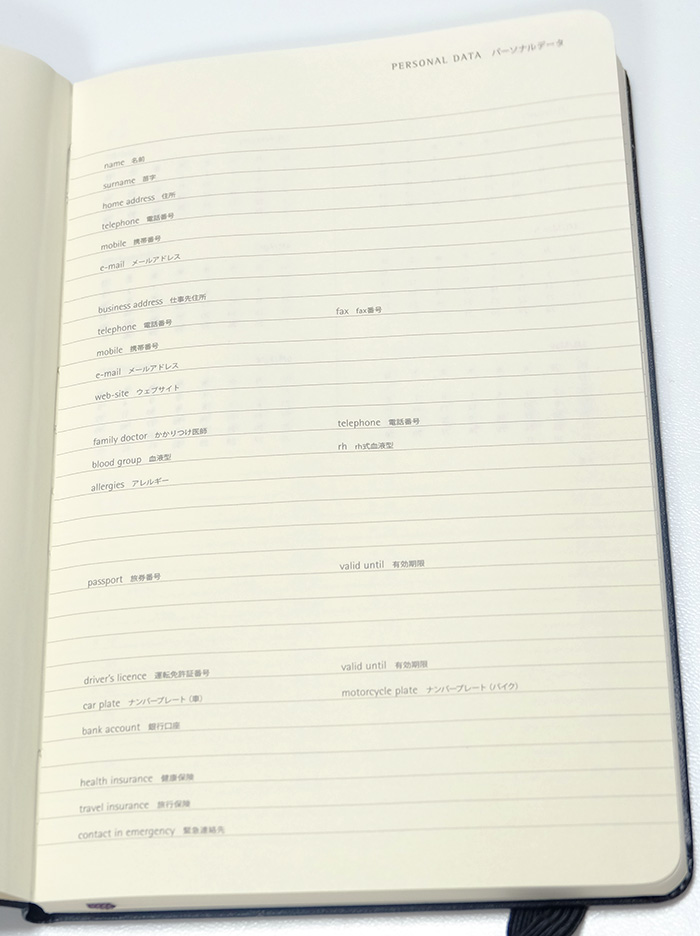 PERSONAL DATA パーソナルデータ
name 名前
surname 苗字
home address 住所
telephone 電話番号
mobile 携帯番号
e-mail メールアドレス
business address 仕事先住所
telephone 電話番号 fax fax番号
mobile 携帯番号
e-mail メールアドレス
web-site ウェブサイト
family doctor かかりつけ医師 telephone 電話番号
blood group 血液型 rh rh式血液型
allergies アレルギー
passport 旅券番号 valid until 有効期限
driver's licence 運転免許証番号 valid until 有効期限
car plate ナンバープレート (車) motorcycle plate ナンバープレート (バイク)
bank account 銀行口座
health insurance 健康保険
travel insurance 旅行保険
contact in emergency 緊急連絡先